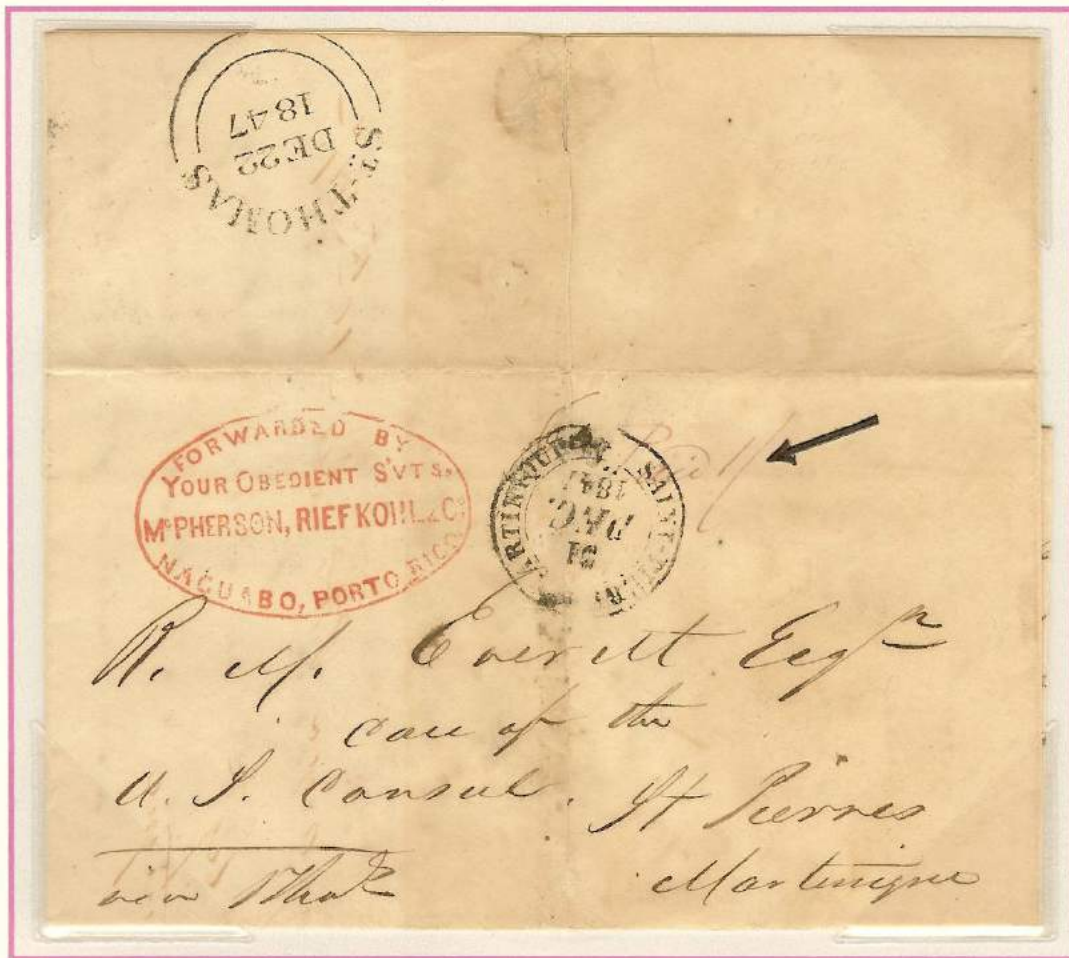 ST. THOMAS
DE 22
1847
FORWARDED BY
YOUR OBEDIENT SVTS,
McPHERSON, RIEFKOHL & Co.
NAGUABO, PORTO RICO
Paid 1/
SAINT-PIERRE
MARTINIQUE
31
DEC.
1847
R. M. Everett Esqr
care of the
U. S. Consul.
St Pierres
Martinique
via